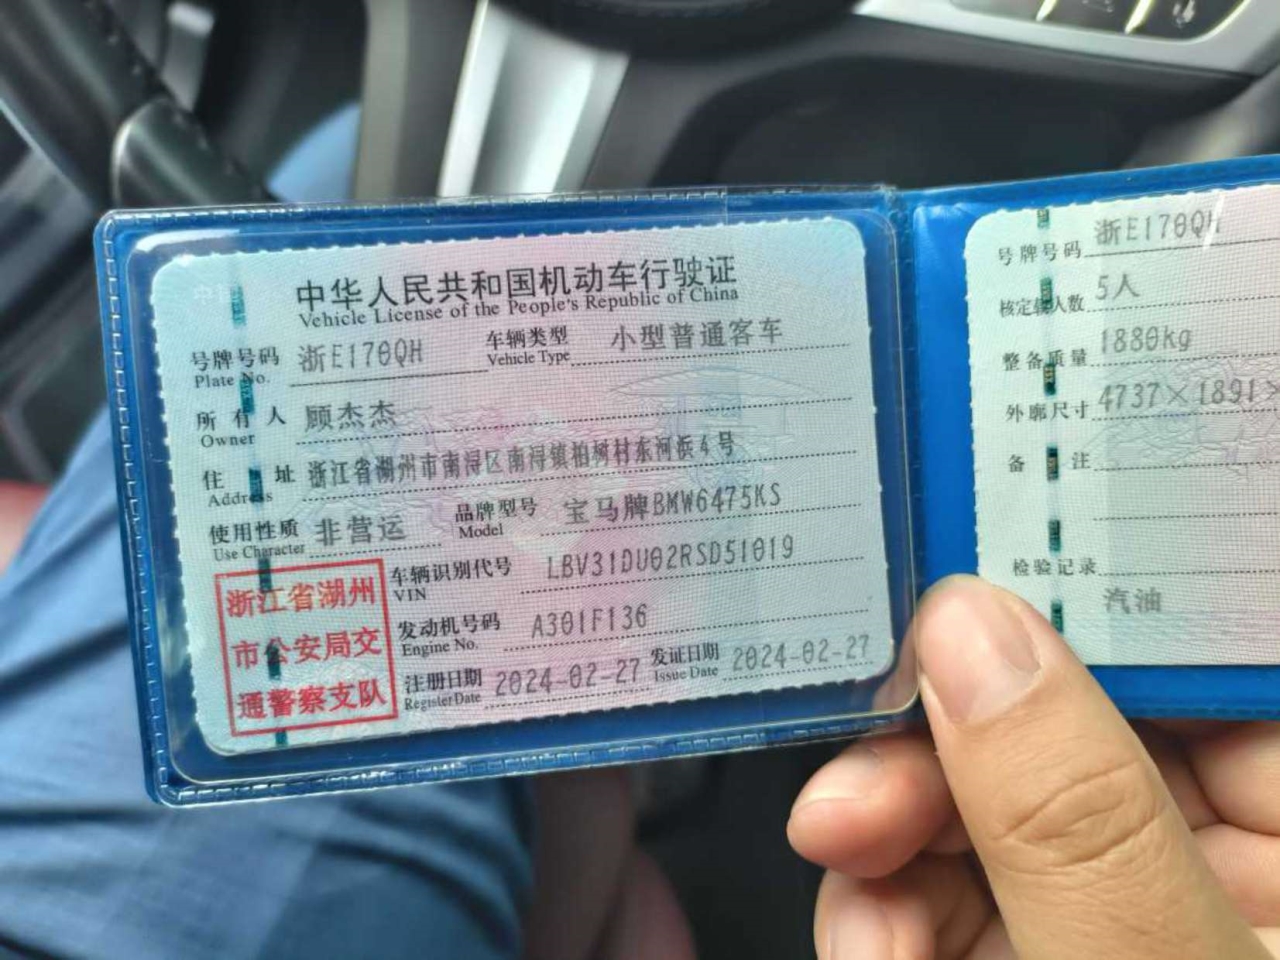 中华人民共和国机动车行驶证
Vehicle License of the People's Republic of China
号牌号码 浙E170QH 车辆类型 小型普通客车
Plate No. Vehicle Type
所有人 顾杰杰
Owner
住址 浙江省湖州市南浔区南浔镇柏树村东河浜4号
Address
使用性质 非营运 品牌型号 宝马牌BMW6475KS
Use Character Model
车辆识别代号 LBV31DU02RSD51019
VIN
发动机号码 A301F136
Engine No.
注册日期 2024-02-27 发证日期 2024-02-27
Register Date Issue Date
浙江省湖州
市公安局交
通警察支队
号牌号码 浙E170QH
核定载人数 5人
整备质量 1880kg
外廓尺寸 4737×1891×
备注
检验记录
汽油